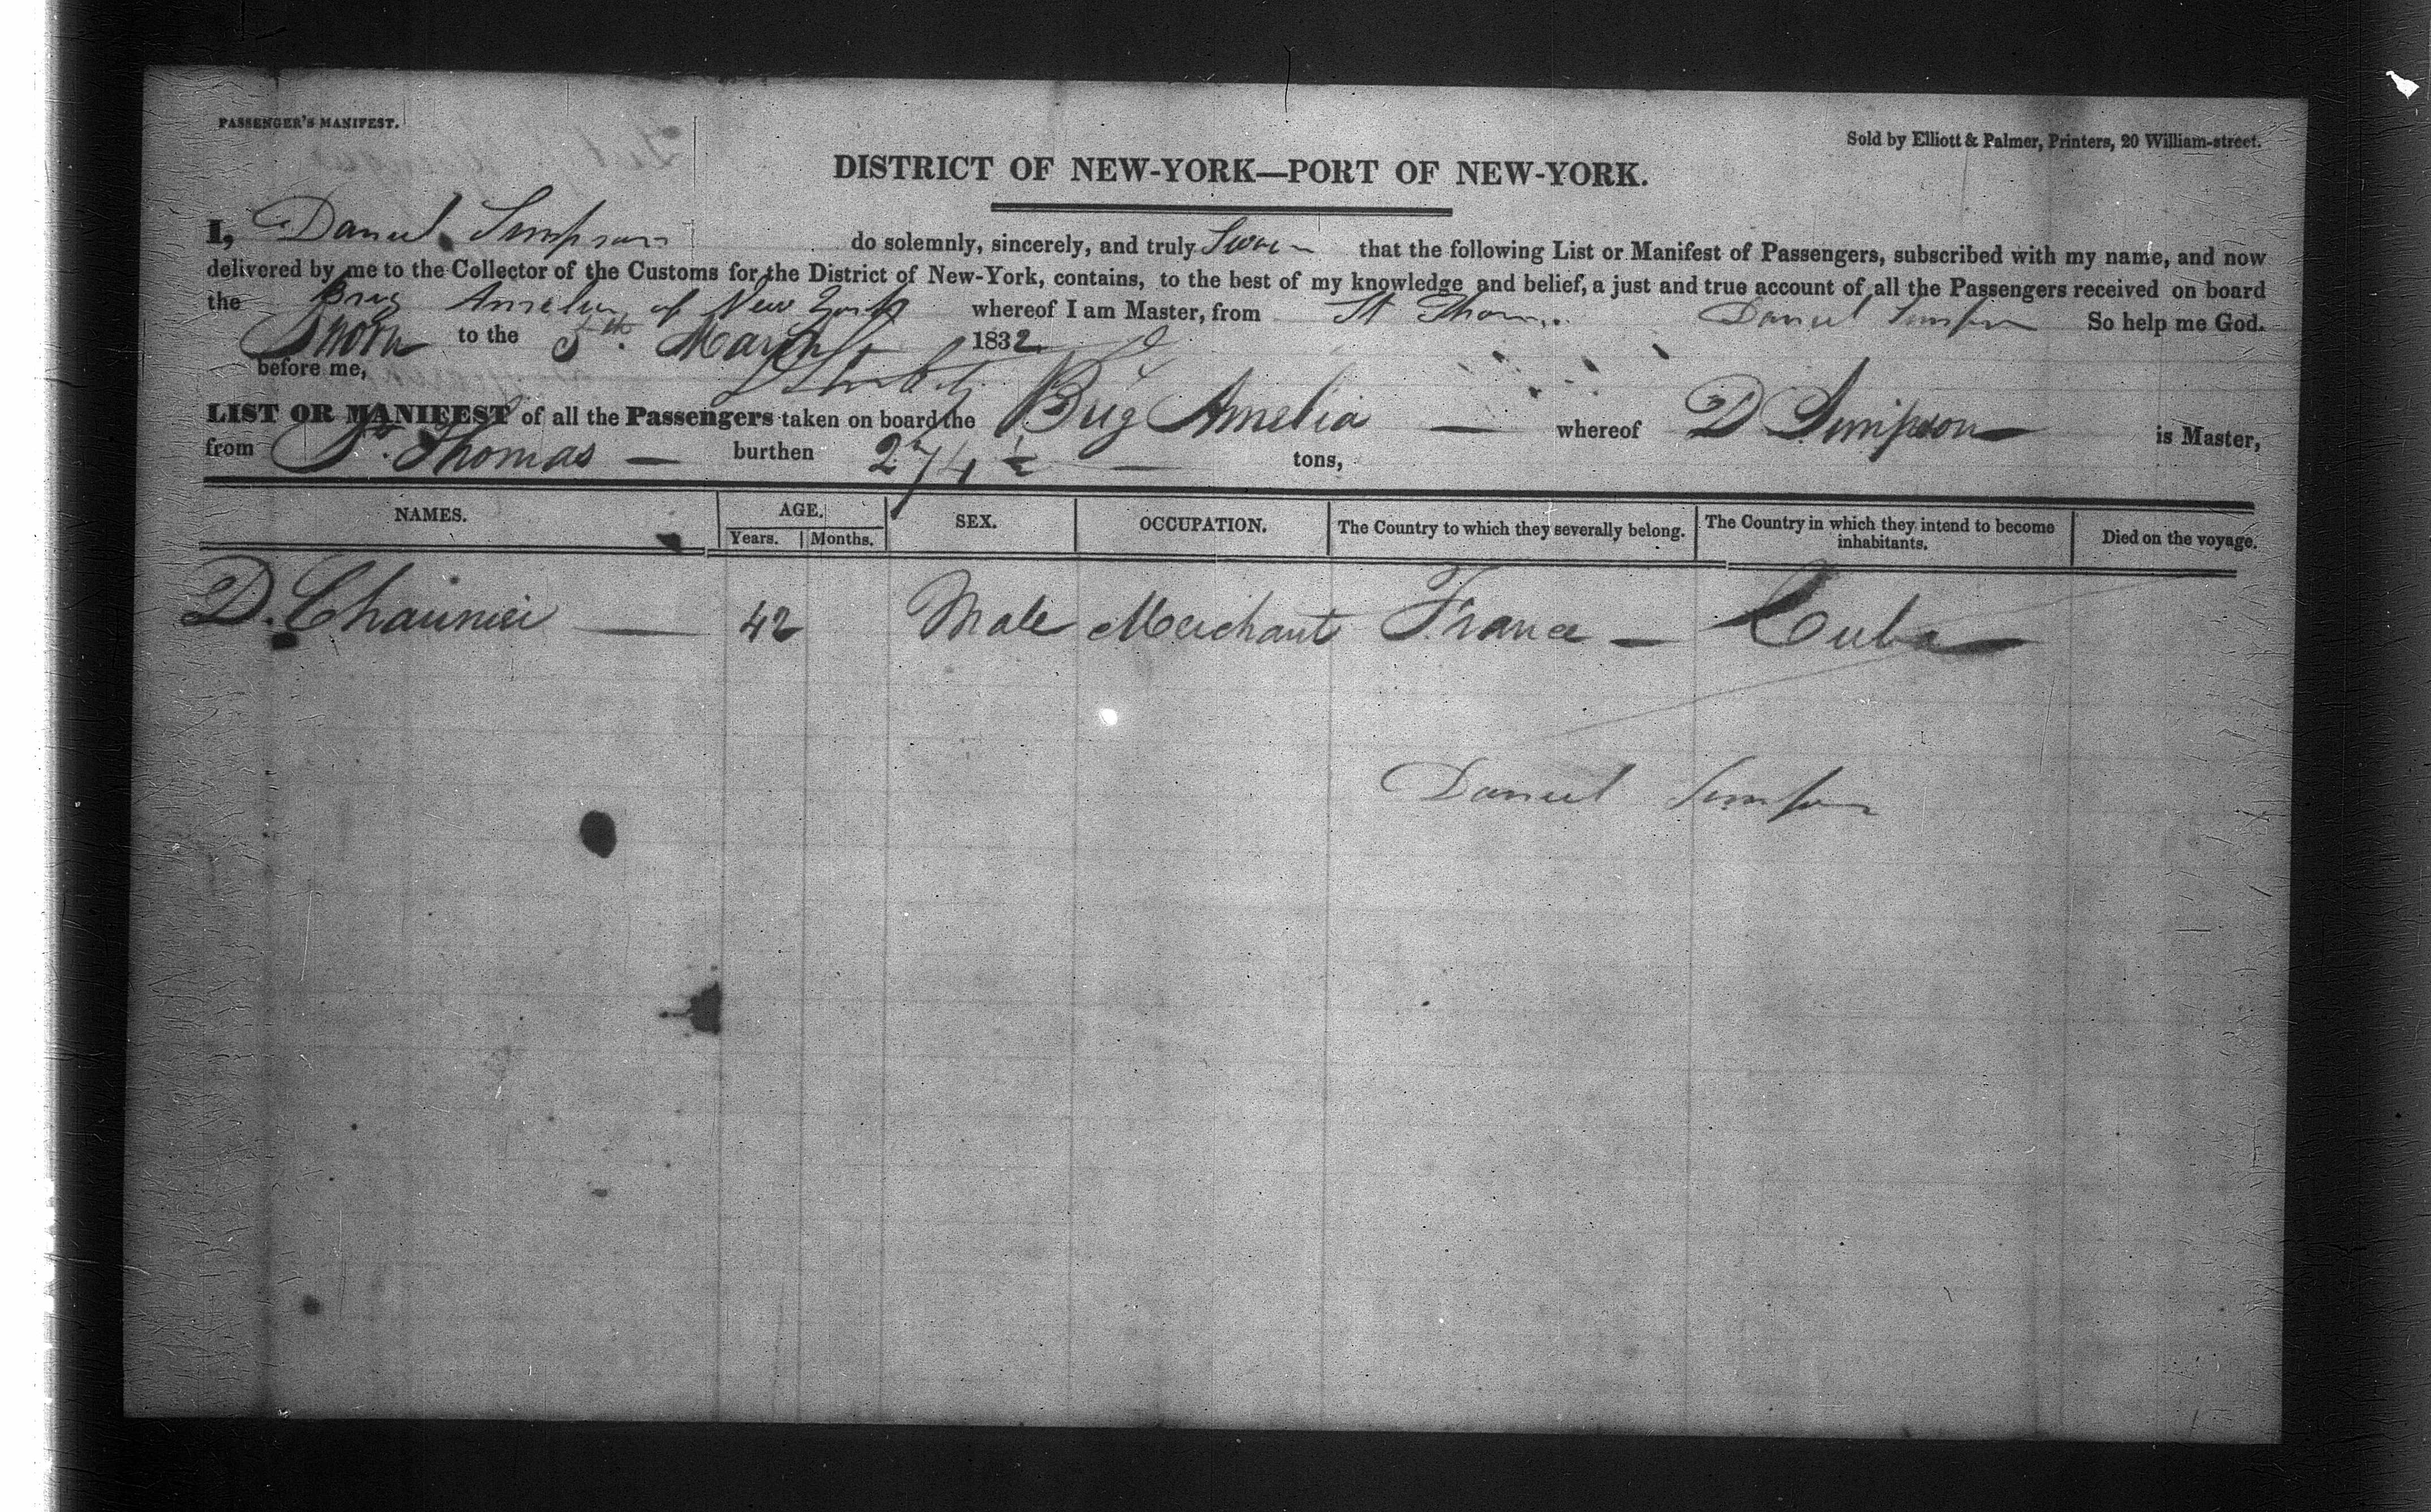 PASSENGER'S MANIFEST.
Sold by Elliott & Palmer, Printers, 20 William-street.
DISTRICT OF NEW-YORK—PORT OF NEW-YORK.
I, Daniel Simpson do solemnly, sincerely, and truly Swear that the following List or Manifest of Passengers, subscribed with my name, and now
delivered by me to the Collector of the Customs for the District of New-York, contains, to the best of my knowledge and belief, a just and true account of all the Passengers received on board
the Brig Amelia of New York whereof I am Master, from St Thomas Daniel Simpson So help me God.
Sworn to the 5th. March 1832
before me,
LIST OR MANIFEST of all the Passengers taken on board the Brig Amelia — whereof D Simpson is Master,
from St. Thomas — burthen 274 — tons,
NAMES. AGE. Years. Months. SEX. OCCUPATION. The Country to which they severally belong. The Country in which they intend to become inhabitants. Died on the voyage.
D. Chaunier — 42 Male Merchant France — Cuba
Daniel Simpson